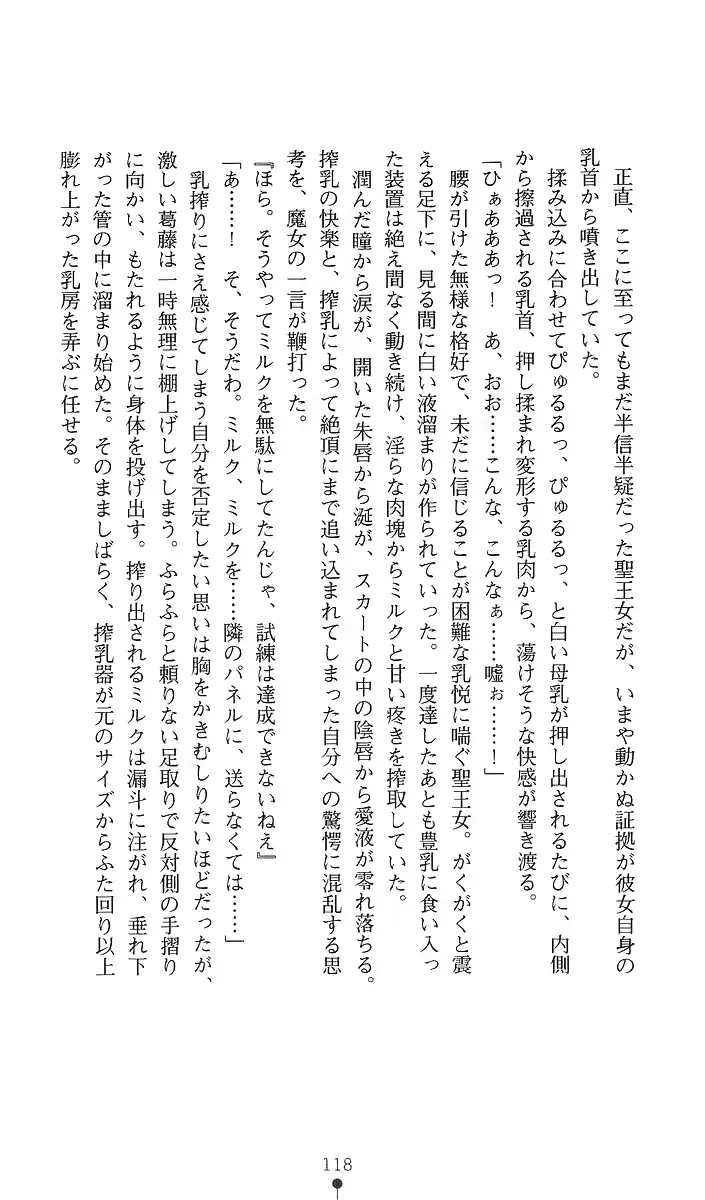 正直、ここに至ってもまだ半信半疑だった聖王女だが、いまや動かぬ証拠が彼女自身の
乳首から噴き出していた。
揉み込みに合わせてぴゅるるっ、ぴゅるるっ、と白い母乳が押し出されるたびに、内側
から擦過される乳首、押し揉まれ変形する乳肉から、蕩けそうな快感が響き渡る。
「ひぁあああっ！　あ、おお……こんな、こんなぁ……嘘ぉ……！」
腰が引けた無様な格好で、未だに信じることが困難な乳悦に喘ぐ聖王女。がくがくと震
える足下に、見る間に白い液溜まりが作られていった。一度達したあとも豊乳に食い入っ
た装置は絶え間なく動き続け、淫らな肉塊からミルクと甘い疼きを搾取していた。
潤んだ瞳から涙が、開いた朱唇から涎が、スカートの中の陰唇から愛液が零れ落ちる。
搾乳の快楽と、搾乳によって絶頂にまで追い込まれてしまった自分への驚愕に混乱する思
考を、魔女の一言が鞭打った。
『ほら。そうやってミルクを無駄にしてたんじゃ、試練は達成できないねえ』
「あ……！　そ、そうだわ。ミルク、ミルクを……隣のパネルに、送らなくては……」
乳搾りにさえ感じてしまう自分を否定したい思いは胸をかきむしりたいほどだったが、
激しい葛藤は一時無理に棚上げしてしまう。ふらふらと頼りない足取りで反対側の手摺り
に向かい、もたれるように身体を投げ出す。搾り出されるミルクは漏斗に注がれ、垂れ下
がった管の中に溜まり始めた。そのまましばらく、搾乳器が元のサイズからふた回り以上
膨れ上がった乳房を弄ぶに任せる。
118